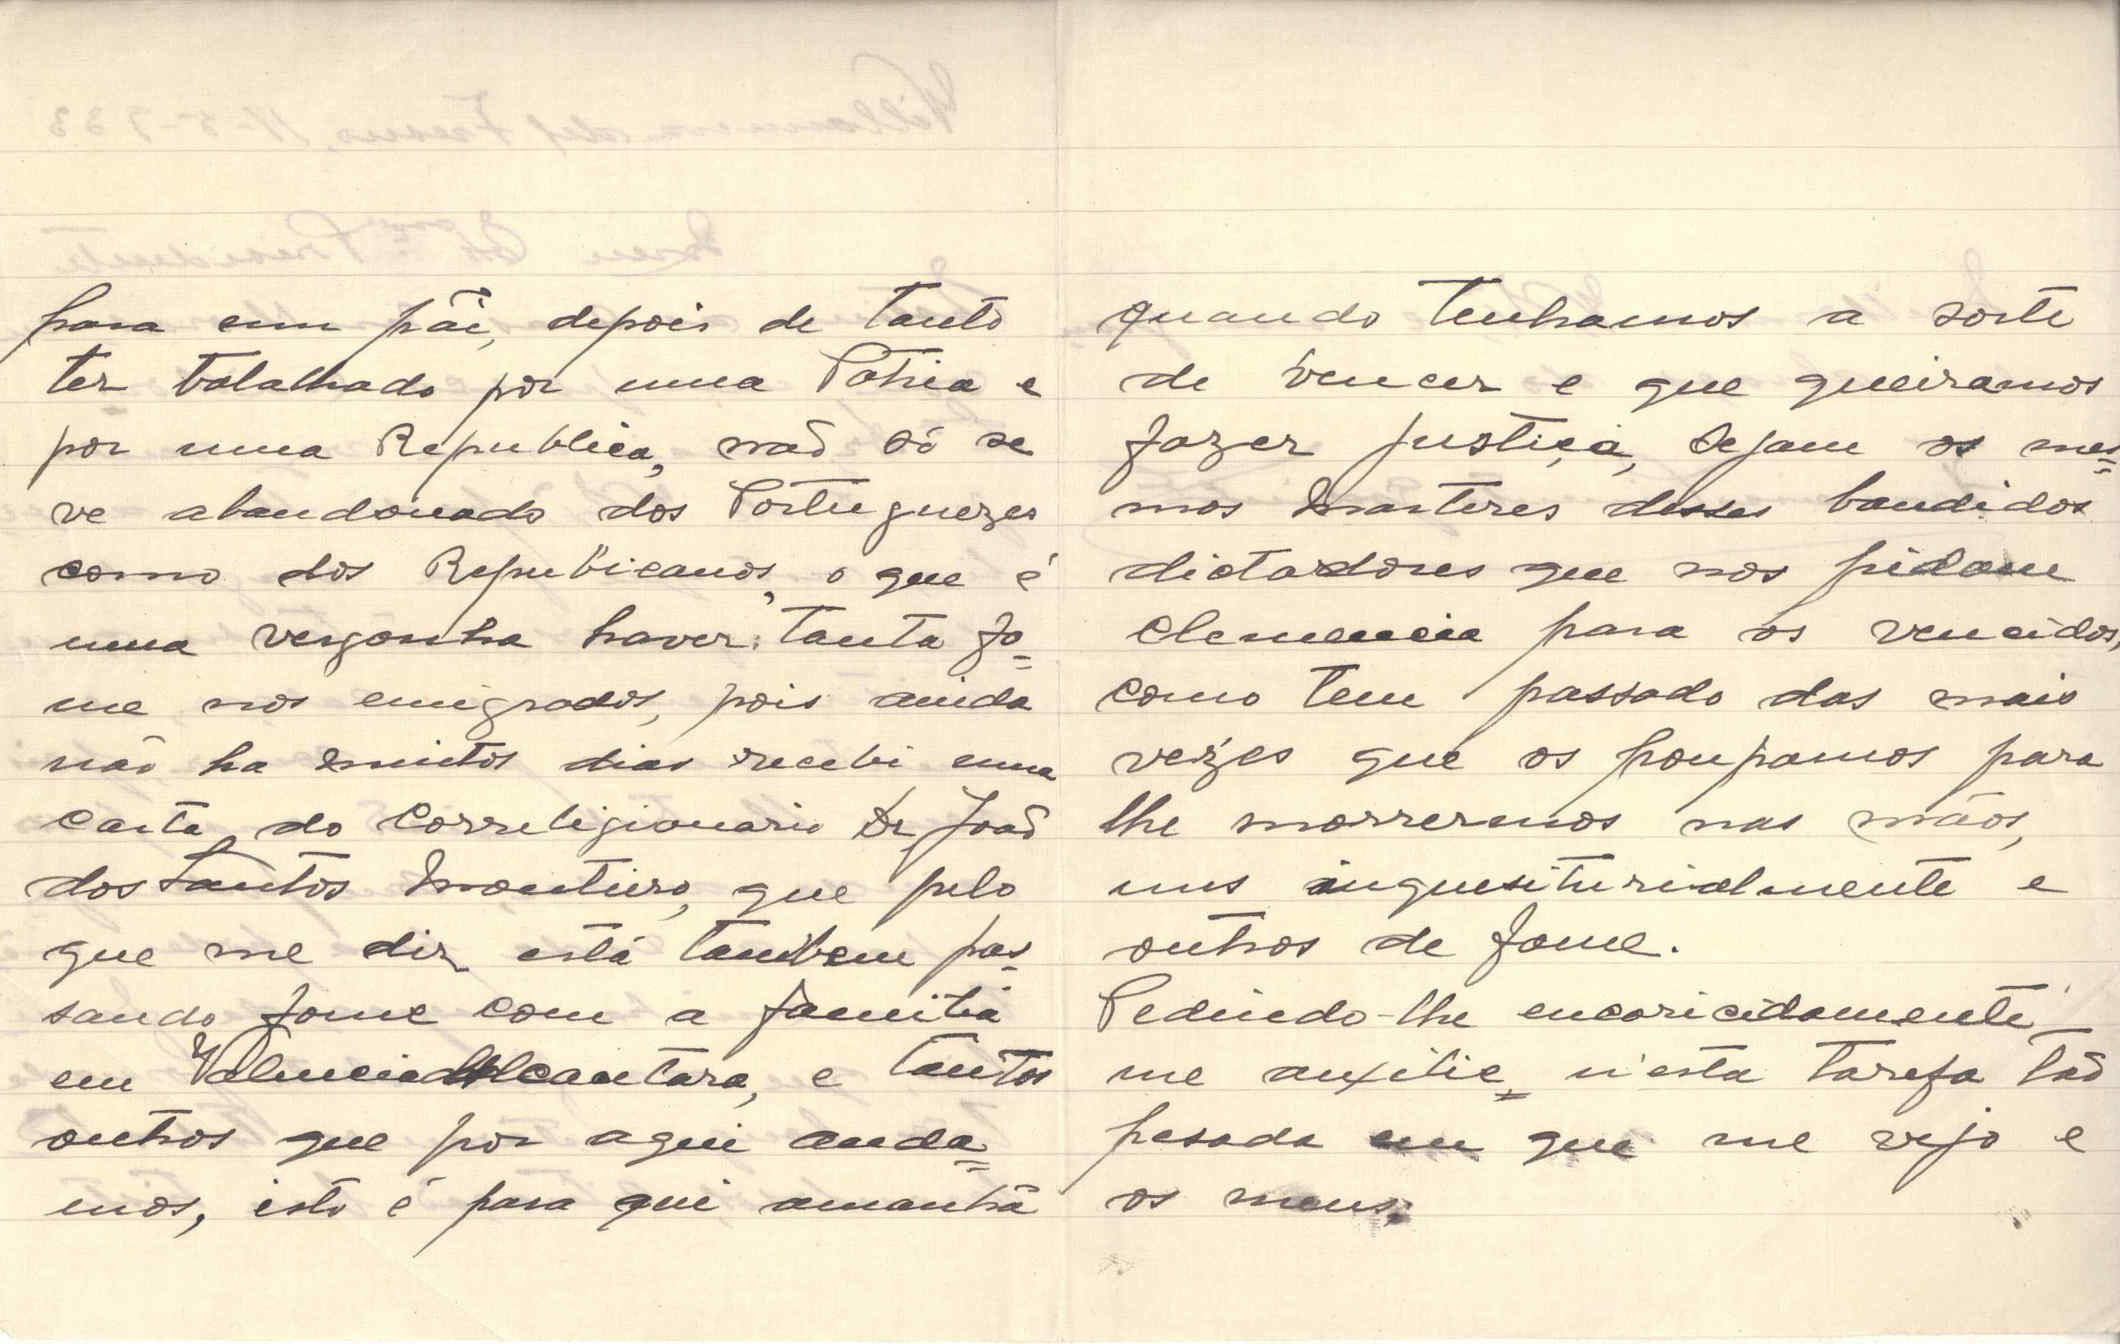 para um pãi, depois de tanto
ter batalhado por uma Patria e
por uma Republica, naõ só se
ve abandonado dos Portuguezes
como dos Republicanos, o que é
uma vergonha haver tanta fo=
me nos emigrados, pois ainda
não ha muitos dias recebi uma
carta do Correligionario Dr João
dos Santos Monteiro, que pelo
que me diz está tambem pas-
sando fome com a familia
em Valencia Alcantara, e tantos
outros que por aqui anda=
mos, isto é para que amanhã
quando tenhamos a sorte
de vencer e que queiramos
fazer justiça, sejam os mes=
mos martires desses bandidos
dictadores que nos pidam
clemencia para os vencidos,
como tem passado das mais
vezes que os poupamos para
lhe morrermos nas mãos,
uns inquesiturialmente e
outros de fome.
Pedindo-lhe encaricidamente
me auxilie, n'esta tarefa taõ
pesada em que me vejo e
os meus,